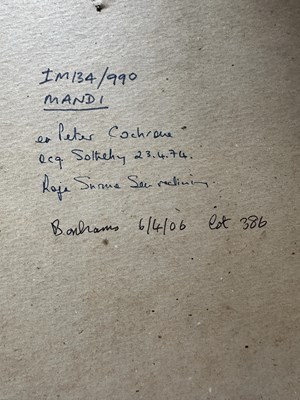 IM134/990
MANDI
ex Peter Cochrane
acq Sotheby 23.4.74.
Raja Surma Sen reclining
Bonhams 6/4/06 lot 386